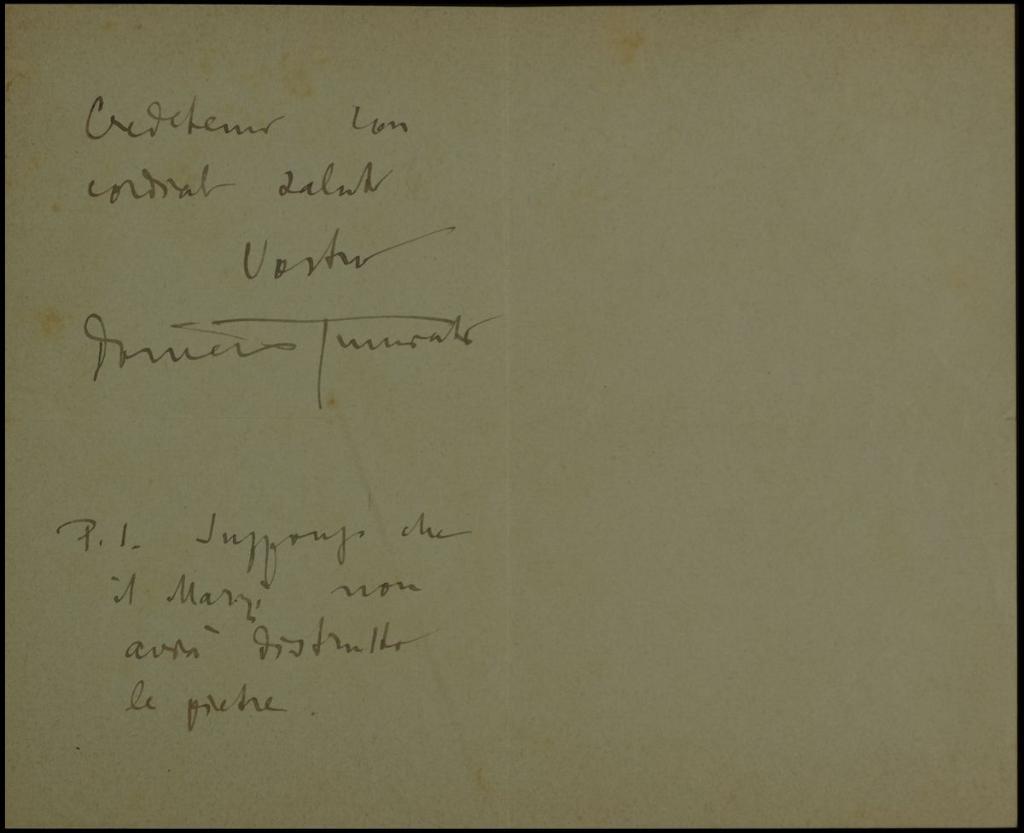 Credetemi con
cordiali saluti
Vostro
Domenico Tumiati
P.S. Suppongo che
il Marzi non
avrà distrutto
le pietre.